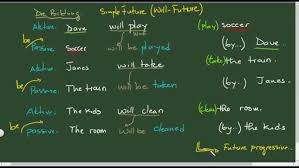 Die Bildung Simple Future (Will-Future)
Aktiv. Dave will play (play) soccer
be Passive. Soccer will be played (by..) Dave.
Aktiv. James will take (take) the train
be Passive. The train will be taken (by..) James.
Aktiv. The kids will clean (clean) the room.
be passive. The room will be cleaned (by..) the kids
Future progressive.